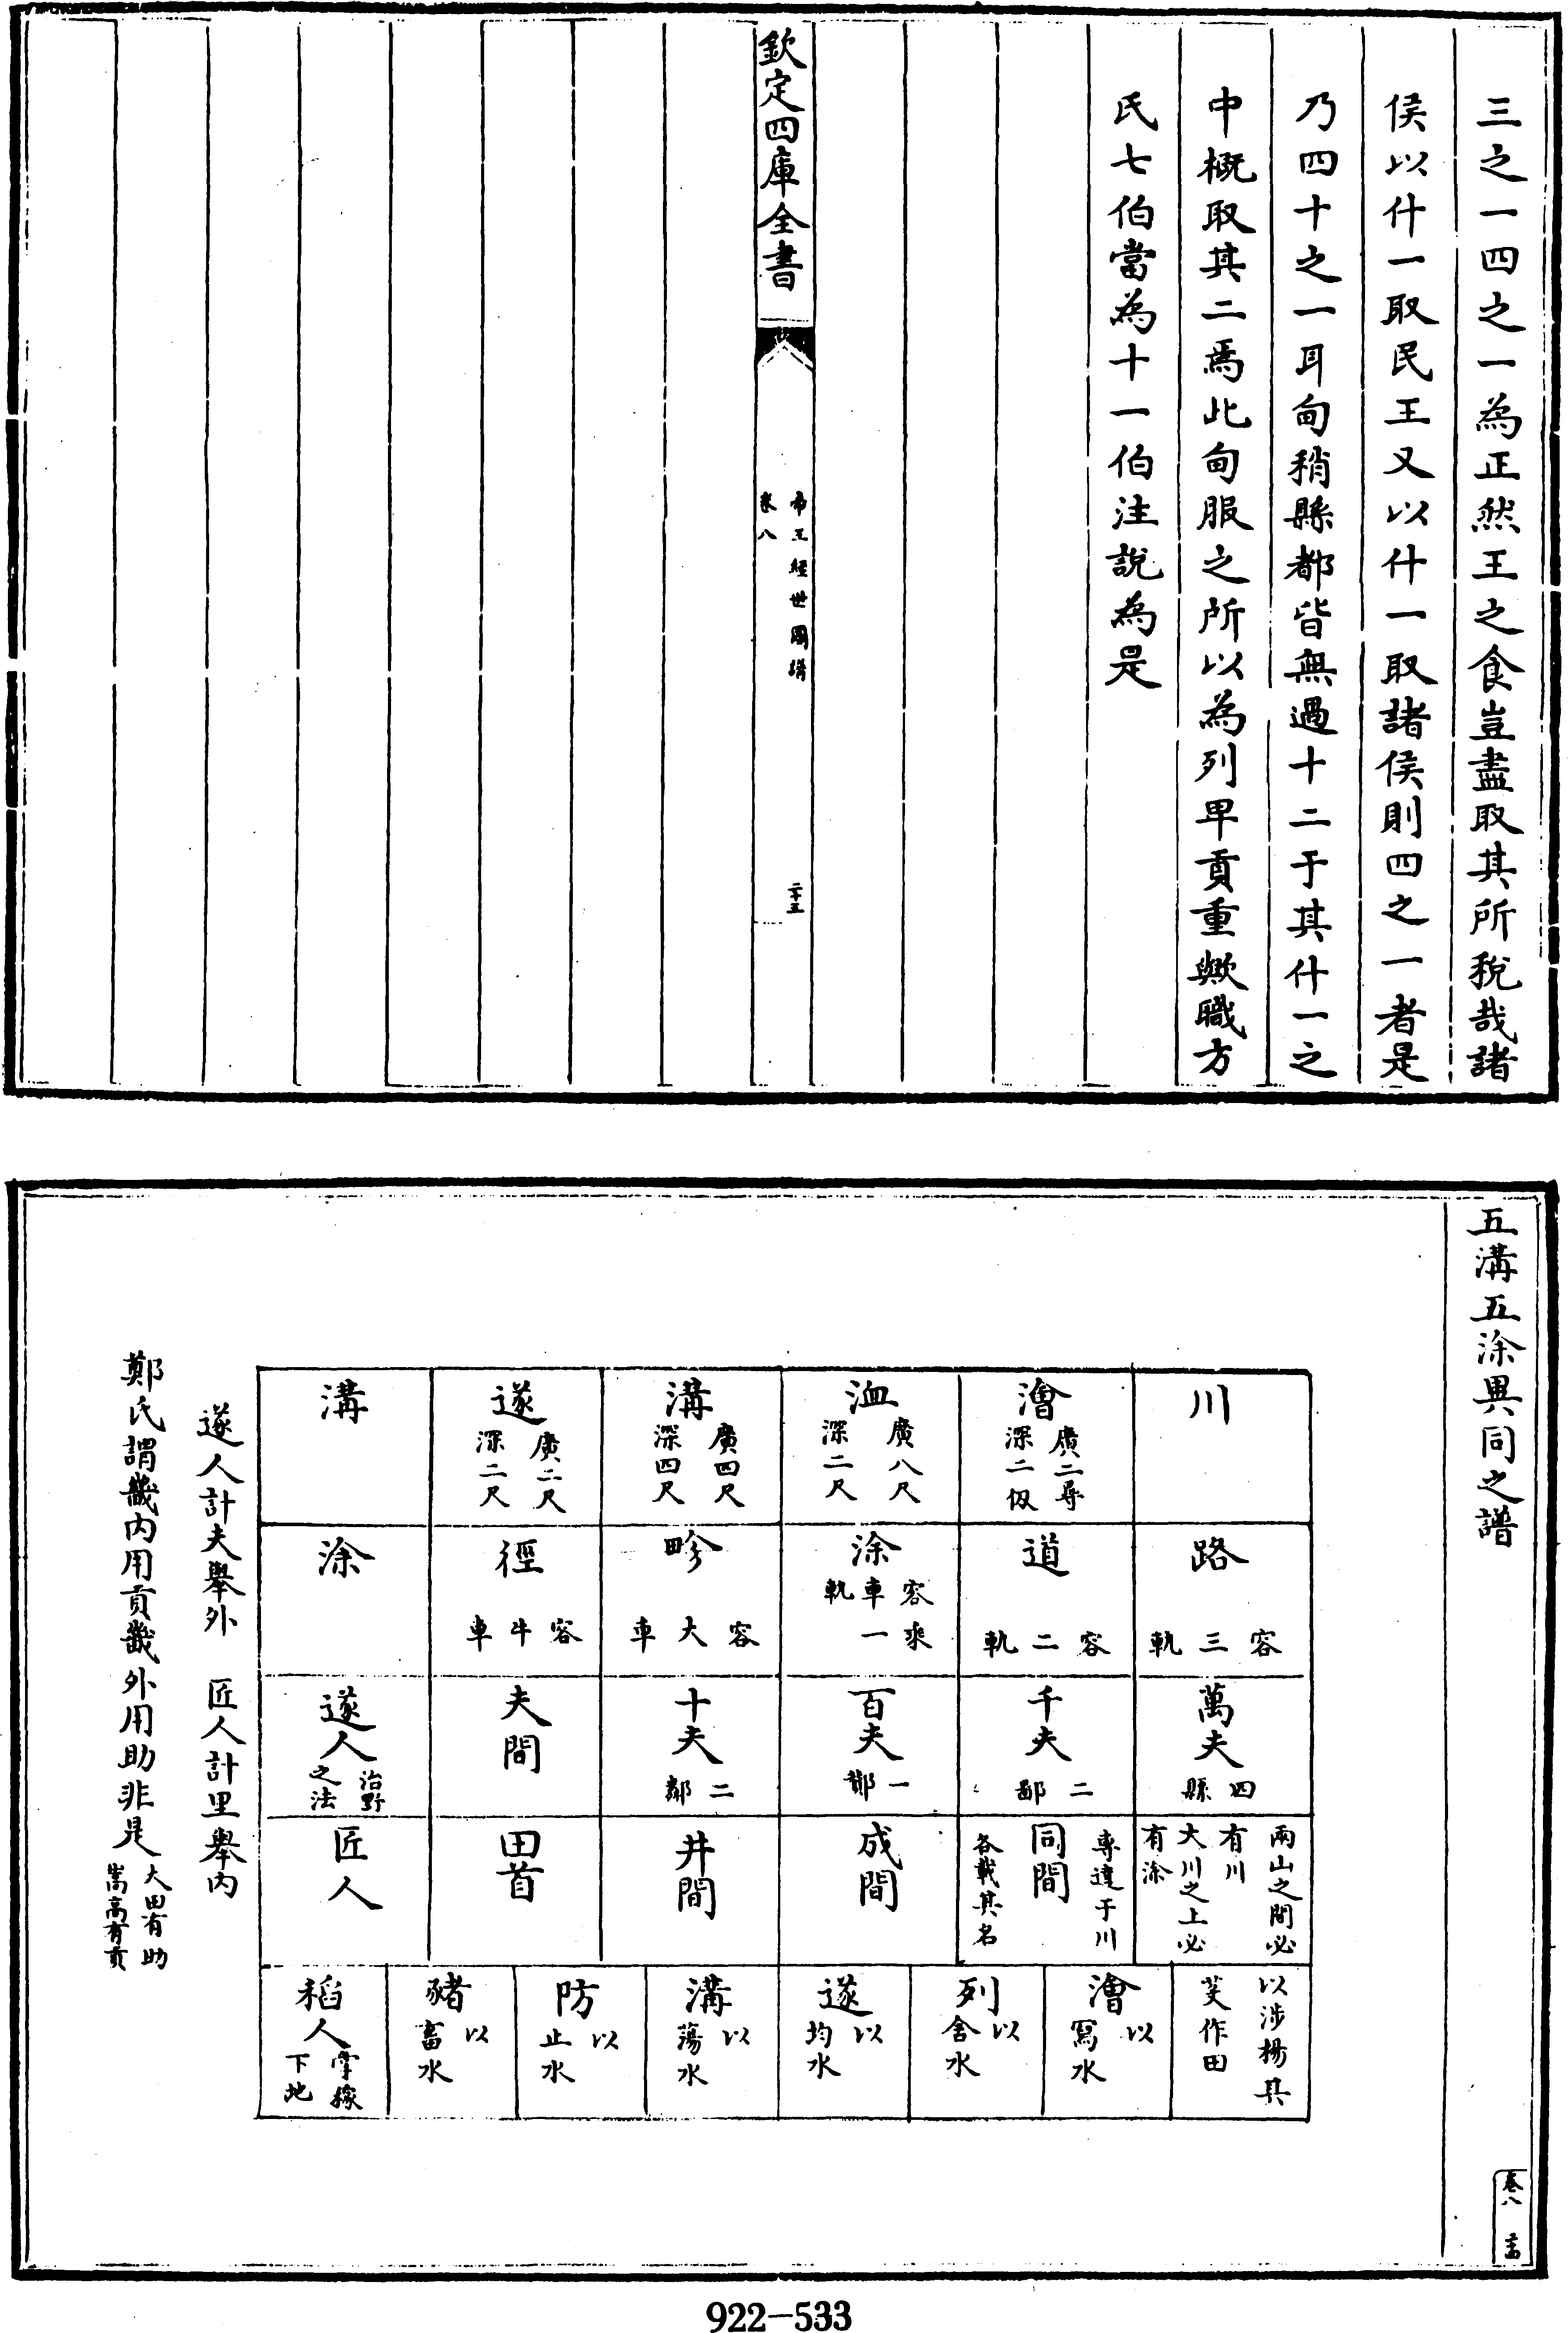 三之一四之一為正然王之食豈盡取其所稅哉諸
侯以什一取民王又以什一取諸侯則四之一者是
乃四十之一耳甸稍縣都皆無過十二于其什一之
中概取其二焉此甸服之所以為列卑貢重歟職方
氏七伯當為十一伯注說為是
欽定四庫全書
帝王經世圖譜
卷八
二十五
五溝五涂異同之譜
川
澮 廣二尋 深二仭
洫 廣八尺 深二尺
溝 廣四尺 深四尺
遂 廣二尺 深二尺
溝
路 容三軌
道 容二軌
涂 容乘車一軌
畛 容大車
徑 容牛車
涂
萬夫 四縣
千夫 二鄙
百夫 一酇
十夫 二鄰
夫間
遂人 治野之法
兩山之間必有川 大川之上必有涂
同間 專達于川 各載其名
成間
井間
田首
匠人
以涉楊其芟作田
澮 以寫水
列 以舍水
遂 以均水
溝 以蕩水
防 以止水
豬 以畜水
稻人 掌稼下地
遂人計夫舉外 匠人計里舉內
鄭氏謂畿內用貢畿外用助非是 大田有助 嵩高有貢
卷八
922-533